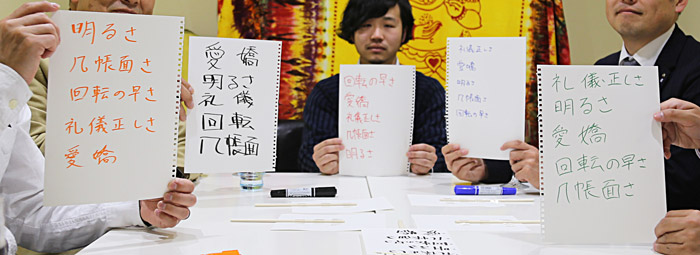 明るさ
几帳面さ
回転の早さ
礼儀正しさ
愛嬌
愛嬌
明るさ
礼儀
回転
几帳面
回転の早さ
愛嬌
礼儀正しさ
几帳面さ
明るさ
礼儀正しさ
愛嬌
明るさ
几帳面さ
回転の早さ
礼儀正しさ
明るさ
愛嬌
回転の早さ
几帳面さ